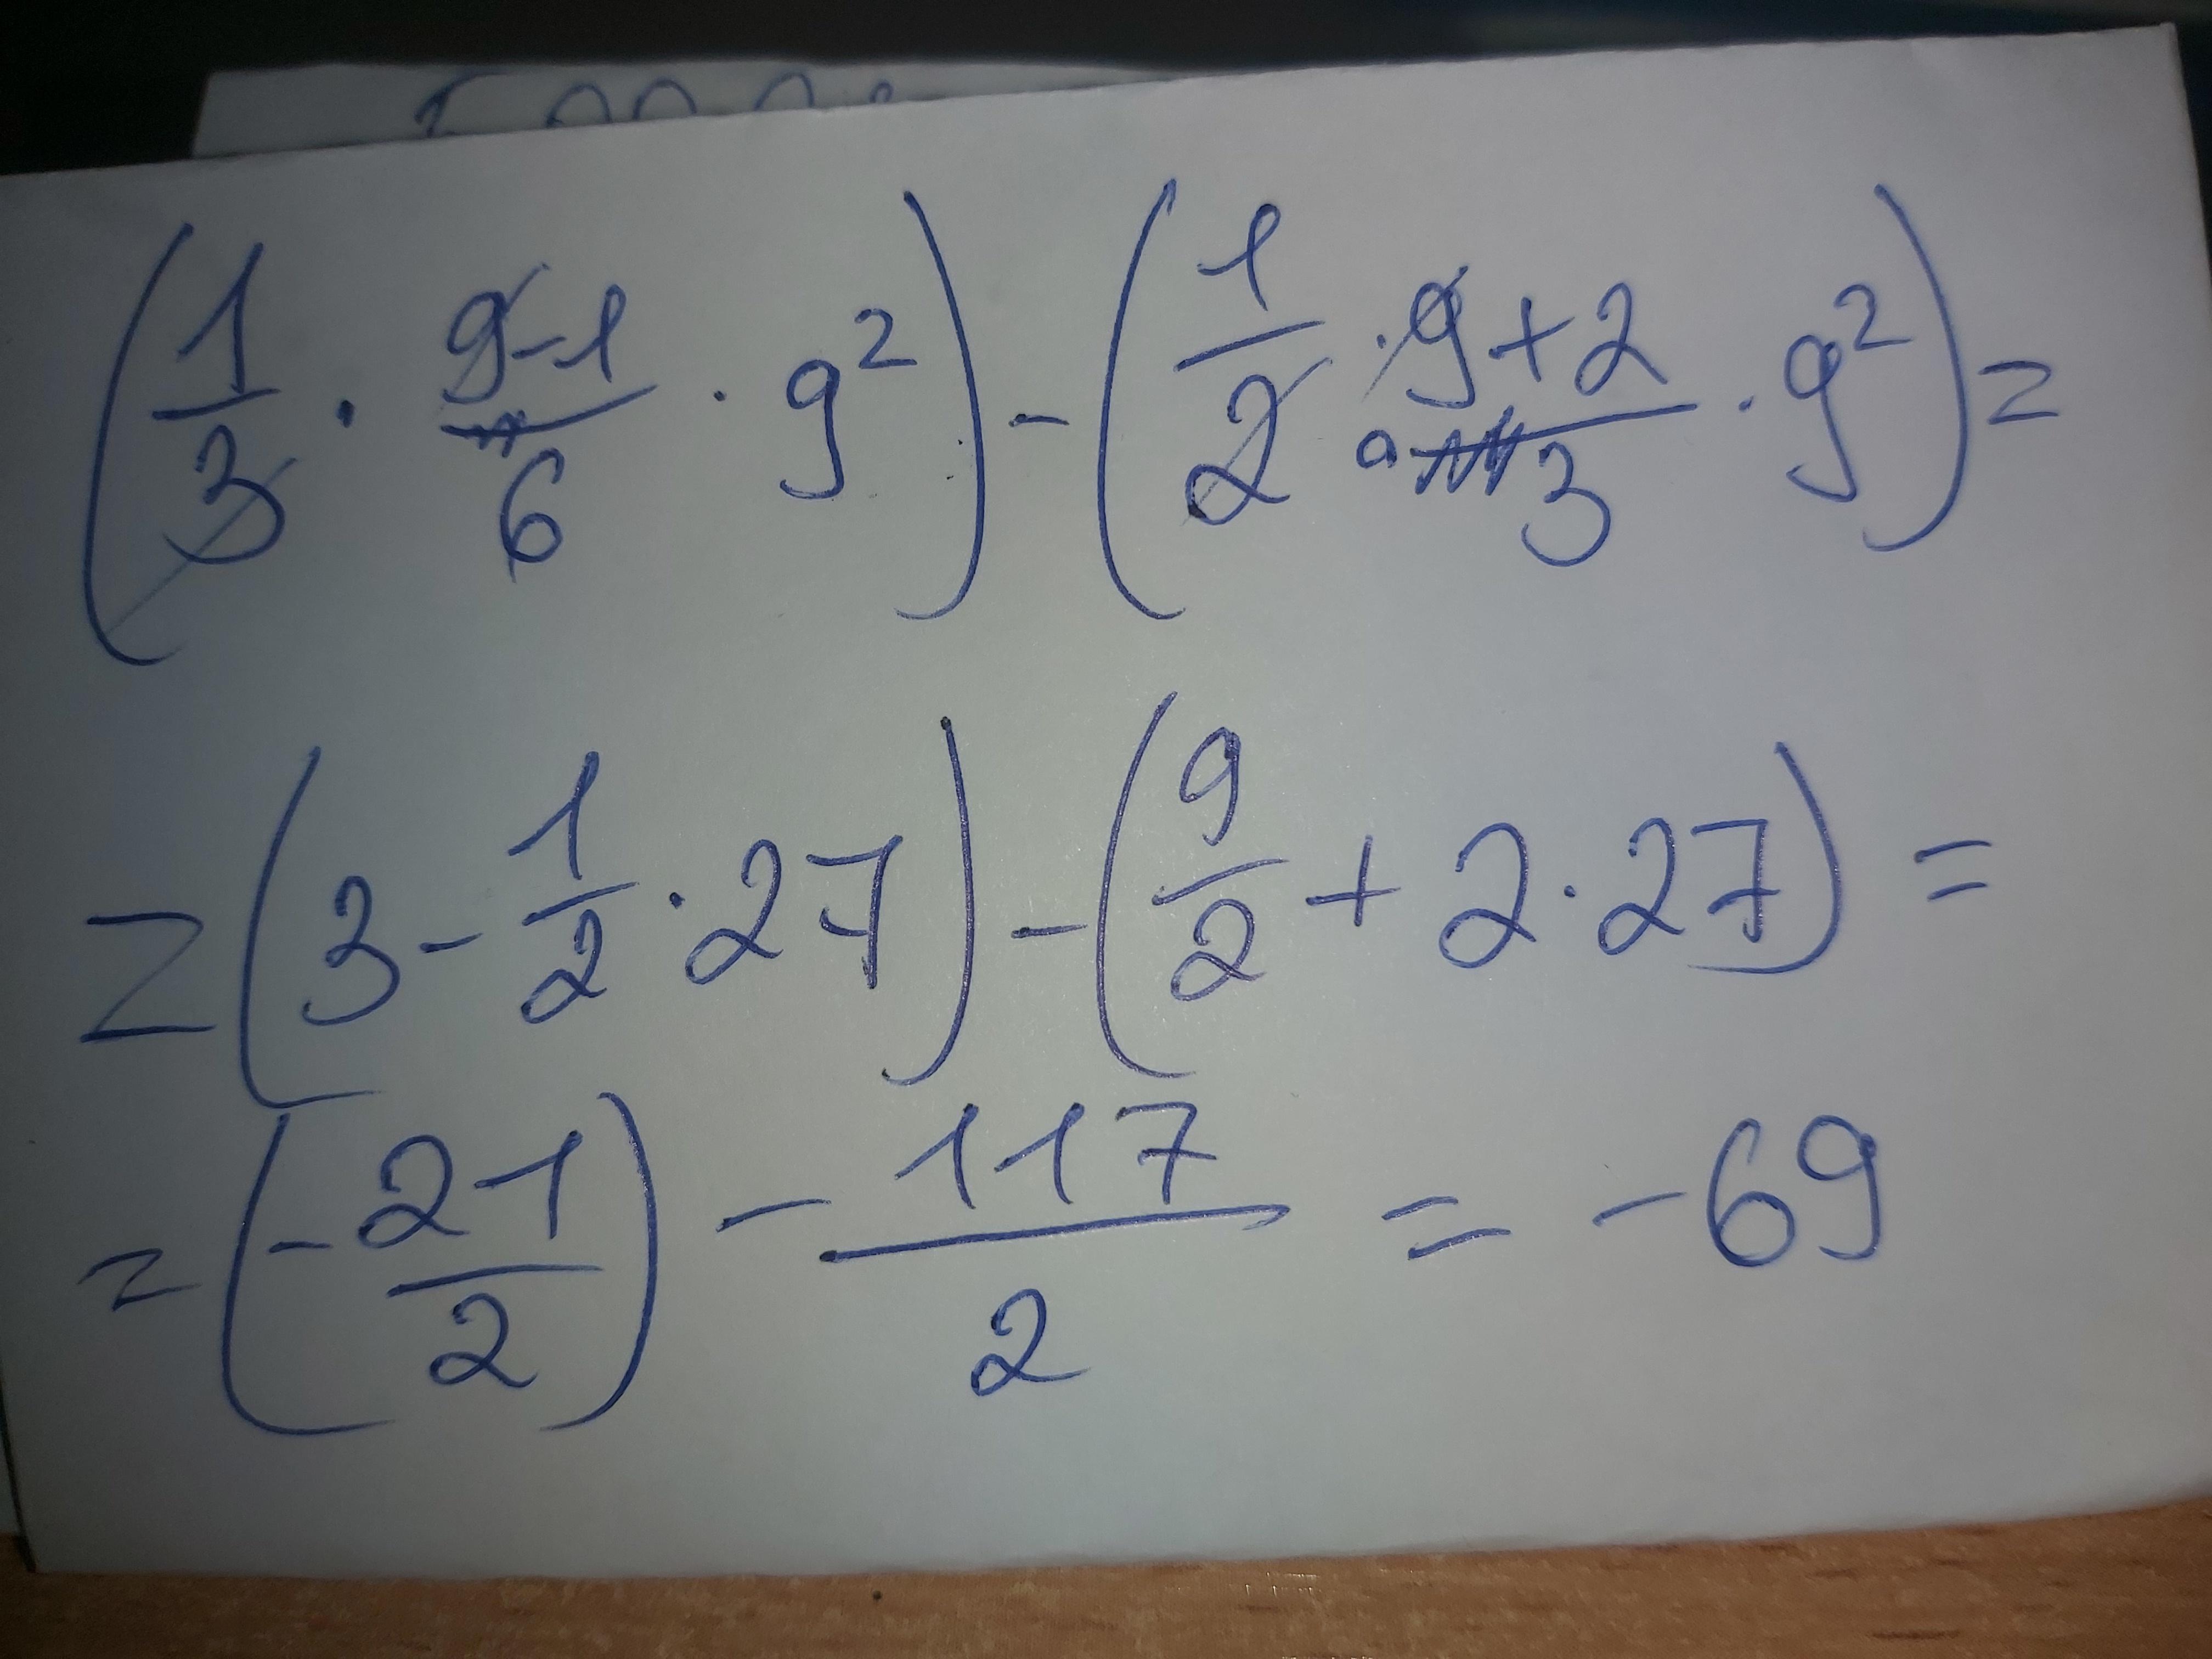 (1/3 · 9-1/6 · 9²) - (1/2 · 9+2/3 · 9²) =
= (3 - 1/2 · 27) - (9/2 + 2 · 27) =
= (- 21/2) - 117/2 = - 69